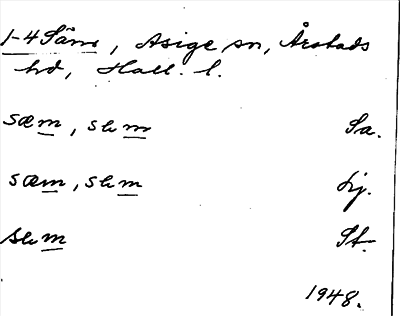 1-4 Säms, Asige sn, Årstads
hd, Hall. l.
sæm, sem Sa.
sæm, sem Lj.
sem St.
1948.